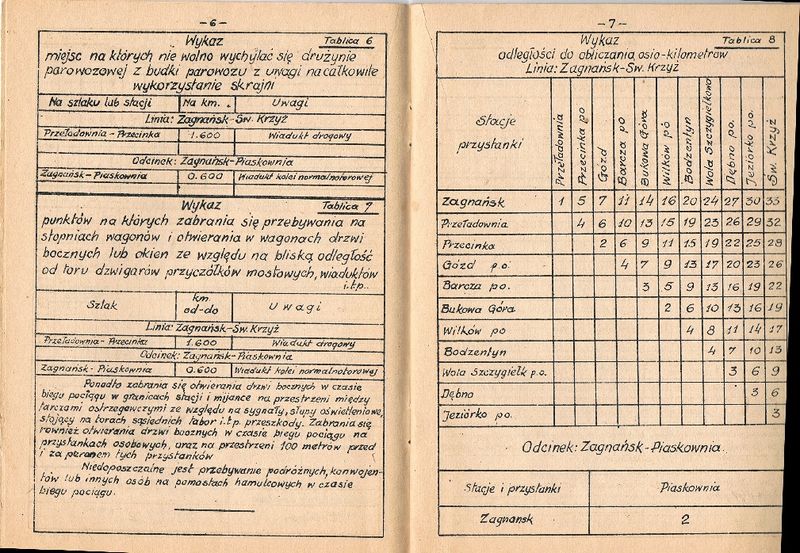 -6-
Wykaz Tablica 6
miejsc na których nie wolno wychylać się drużynie
parowozowej z budki parowozu z uwagi na całkowite
wykorzystanie skrajni
Na szlaku lub stacji Na km. Uwagi
Linia: Zagnańsk-Św. Krzyż
Przeładownia-Przecinka 1.600 Wiadukt drogowy
Odcinek: Zagnańsk-Piaskownia
Zagnańsk-Piaskownia 0.600 Wiadukt kolei normalnotorowej
Wykaz Tablica 7
punktów na których zabrania się przebywania na
stopniach wagonów i otwierania w wagonach drzwi
bocznych lub okien ze względu na bliską odległość
od toru dzwigarów przyczółków mostowych, wiaduktów
i.t.p.
Szlak km. od-do Uwagi
Linia: Zagnańsk-Św. Krzyż
Przeładownia-Przecinka 1.600 Wiadukt drogowy
Odcinek: Zagnańsk-Piaskownia
Zagnańsk-Piaskownia 0.600 Wiadukt kolei normalnotorowej
Ponadto zabrania się otwierania drzwi bocznych w czasie
biegu pociągu w granicach stacji i mijance na przestrzeni między
tarczami ostrzegawczymi ze względu na sygnały, słupy oświetleniowe,
stojący na torach sąsiednich tabor i.t.p. przeszkody. Zabrania się
również otwierania drzwi bocznych w czasie biegu pociągu na
przystankach osobowych, oraz na przestrzeni 100 metrów przed
i za peronem tych przystanków
Niedoposzczalne jest przebywanie podróżnych, konwojen-
tów lub innych osób na pomostach hamulcowych w czasie
biegu pociągu.
-7-
Wykaz Tablica 8
odległości do obliczania osio-kilometrów
Linia: Zagnańsk-Św. Krzyż
Stacje przystanki Przeładownia Przecinka po Gózd Barcza po Bukowa Góra Wilków po Bodzentyn Wola Szczygiełkowa Dębno po. Jeziórko po. Św. Krzyż
Zagnańsk 1 5 7 11 14 16 20 24 27 30 33
Przeładownia 4 6 10 13 15 19 23 26 29 32
Przecinka 2 6 9 11 15 19 22 25 28
Gózd p.o. 4 7 9 13 17 20 23 26
Barcza po. 3 5 9 13 16 19 22
Bukowa Góra 2 6 10 13 16 19
Wilków po 4 8 11 14 17
Bodzentyn 4 7 10 13
Wola Szczygiełk p.o. 3 6 9
Dębna 3 6
Jeziórko po. 3
Odcinek: Zagnańsk-Piaskownia
Stacje i przystanki Piaskownia
Zagnańsk 2